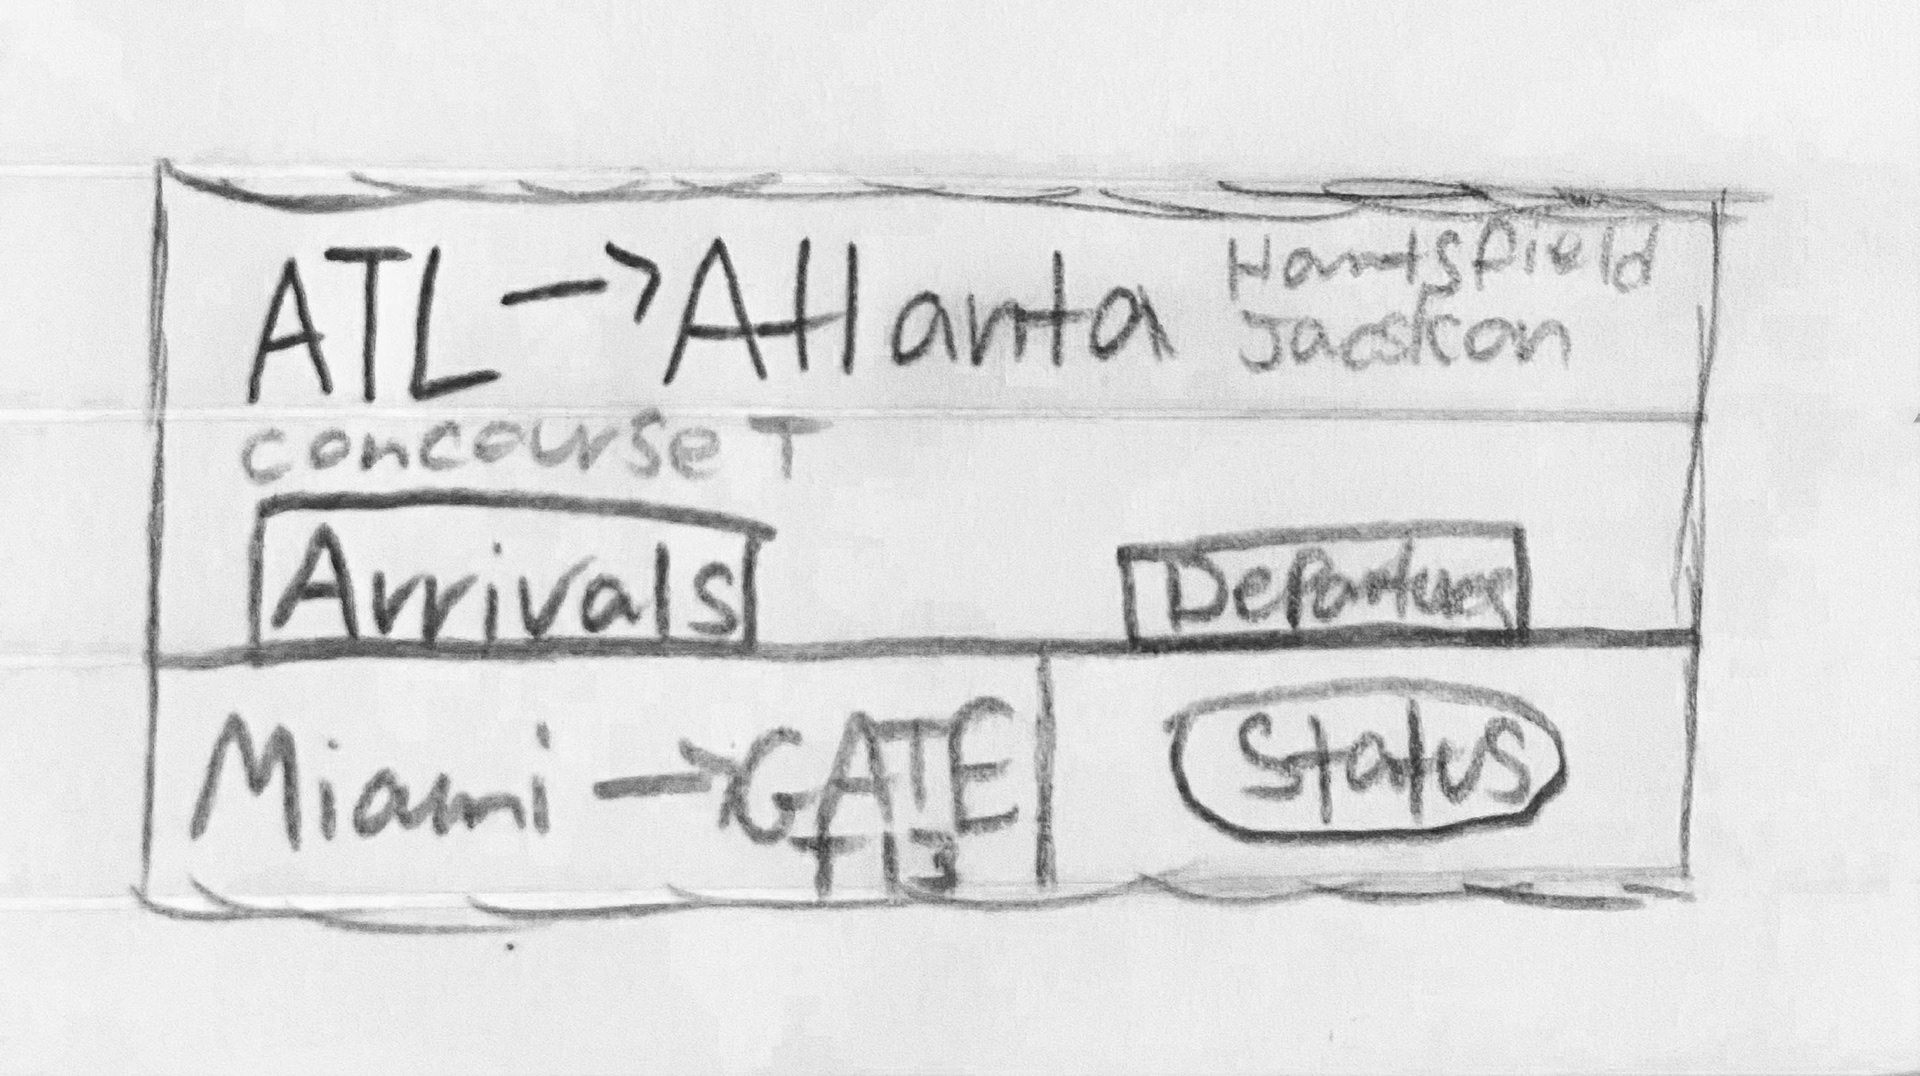 ATL → Atlanta Hartsfield
Jacskon
concourse T
Arrivals Departures
Miami → GATE Status
T13